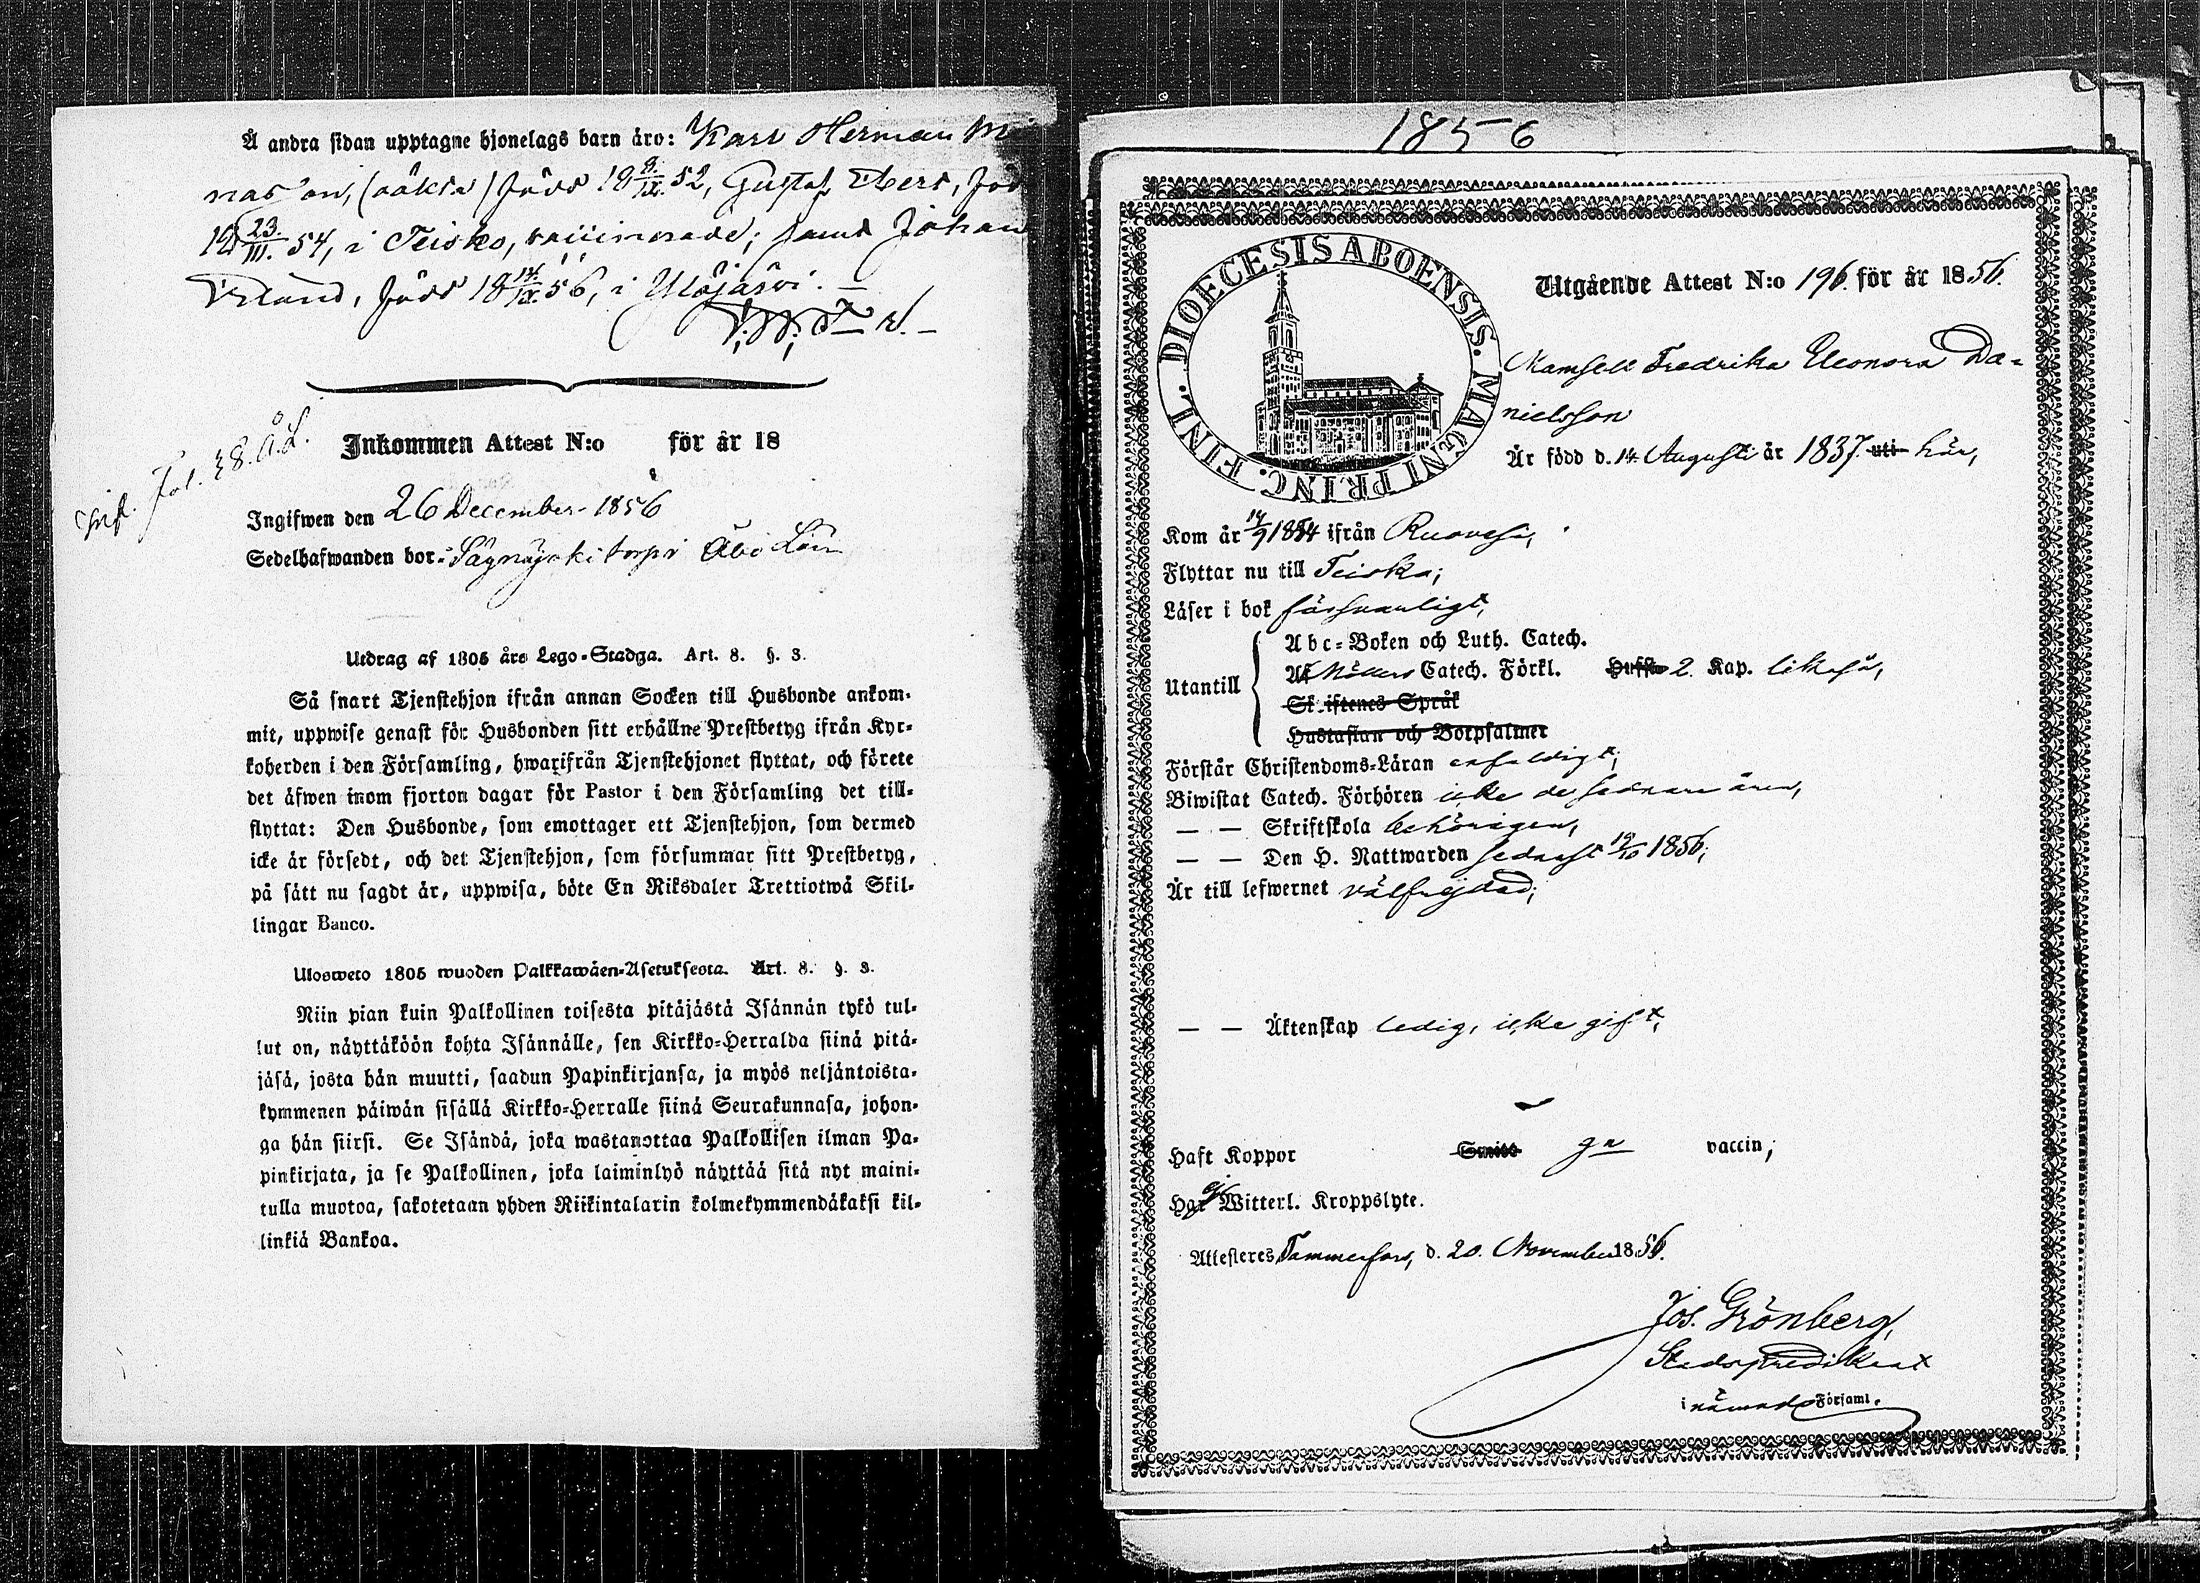 Å andra sidan upptagne hjonelags barn äro: Karl Herman
nas son, (oäkta) född 18 9/IX. 52, Gustaf Evert, föd
18 23./III. 54, i Teisko, vaccinerade; samt Johan
Erland, född 18 14/IX. 56, i Ylöjärvi. —
Inkommen Attest N:o för år 18
Fol. 38. Å.L.
Ingifwen den 26 December 1856
Sedelhafwanden bor: Åbo Län
Utdrag af 1805 års Lego-Stadga. Art. 8. §. 3.
Så snart Tjenstehjon ifrån annan Socken till Husbonde ankom-
mit, uppwise genast för Husbonden sitt erhållne Prestbetyg ifrån Kyr-
koherden i den Församling, hwarifrån Tjenstehjonet flyttat, och förete
det äfwen inom fjorton dagar för Pastor i den Församling det till-
flyttat: Den Husbonde, som emottager ett Tjenstehjon, som dermed
icke är försedt, och det Tjenstehjon, som försummar sitt Prestbetyg,
på sätt nu sagdt är, uppwisa, böte En Riksdaler Trettiotwå Skil-
lingar Banco.
Ulosweto 1805 wuoden Palkkawäen-Asetuksesta. Art. 8. §. 3.
Niin pian kuin Palkollinen toisesta pitäjästä Isännän tykö tul-
lut on, näyttäköön kohta Isännälle, sen Kirkko-Herralda siinä pitä-
jäsä, josta hän muutti, saadun Papinkirjansa, ja myös neljäntoista-
kymmenen päiwän sisällä Kirkko-Herralle siinä Seurakunnasa, johon-
ga hän siirsi. Se Isändä, joka wastanottaa Palkollisen ilman Pa-
pinkirjata, ja se Palkollinen, joka laiminlyö näyttää sitä nyt maini-
tulla muotoa, sakotetaan yhden Riikintalarin kolmekymmendäkaksi kil-
linkiä Bankoa.
1856
DIOECESIS ABOENSIS. MAGNI PRINC. FINL.
Utgående Attest N:o 196. för år 1856.
Mamsell Fredrika Eleonora Da-
nielsson
Är född d. 14. Augusti år 1837. uti här,
Kom år 14/9 1854 ifrån Ruovesi,
Flyttar nu till Teisko;
Läser i bok försvarligt,
Utantill
Abc-Boken och Luth. Catech.
Af Möllers Catech. Förkl. Huffw 2. Kap. likaså,
Skriftenes Språk
Hustaflan och Botpsalmer
Förstår Christendoms-Läran enfaldigt;
Biwistat Catech. Förhören icke de sednare åren,
— — Skriftskola behörigen,
— — Den H. Nattwarden sednast 19/10 1856;
Är till lefwernet välfrejdad;
— — Äktenskap ledig, icke gift,
Haft Koppor Smitt ga vaccin;
Har ej Witterl. Kroppslyte.
Attesteres Tammerfors, d. 20. November 1856.
Jos. Grönberg,
Stadspredikant
i nämnde Församl.